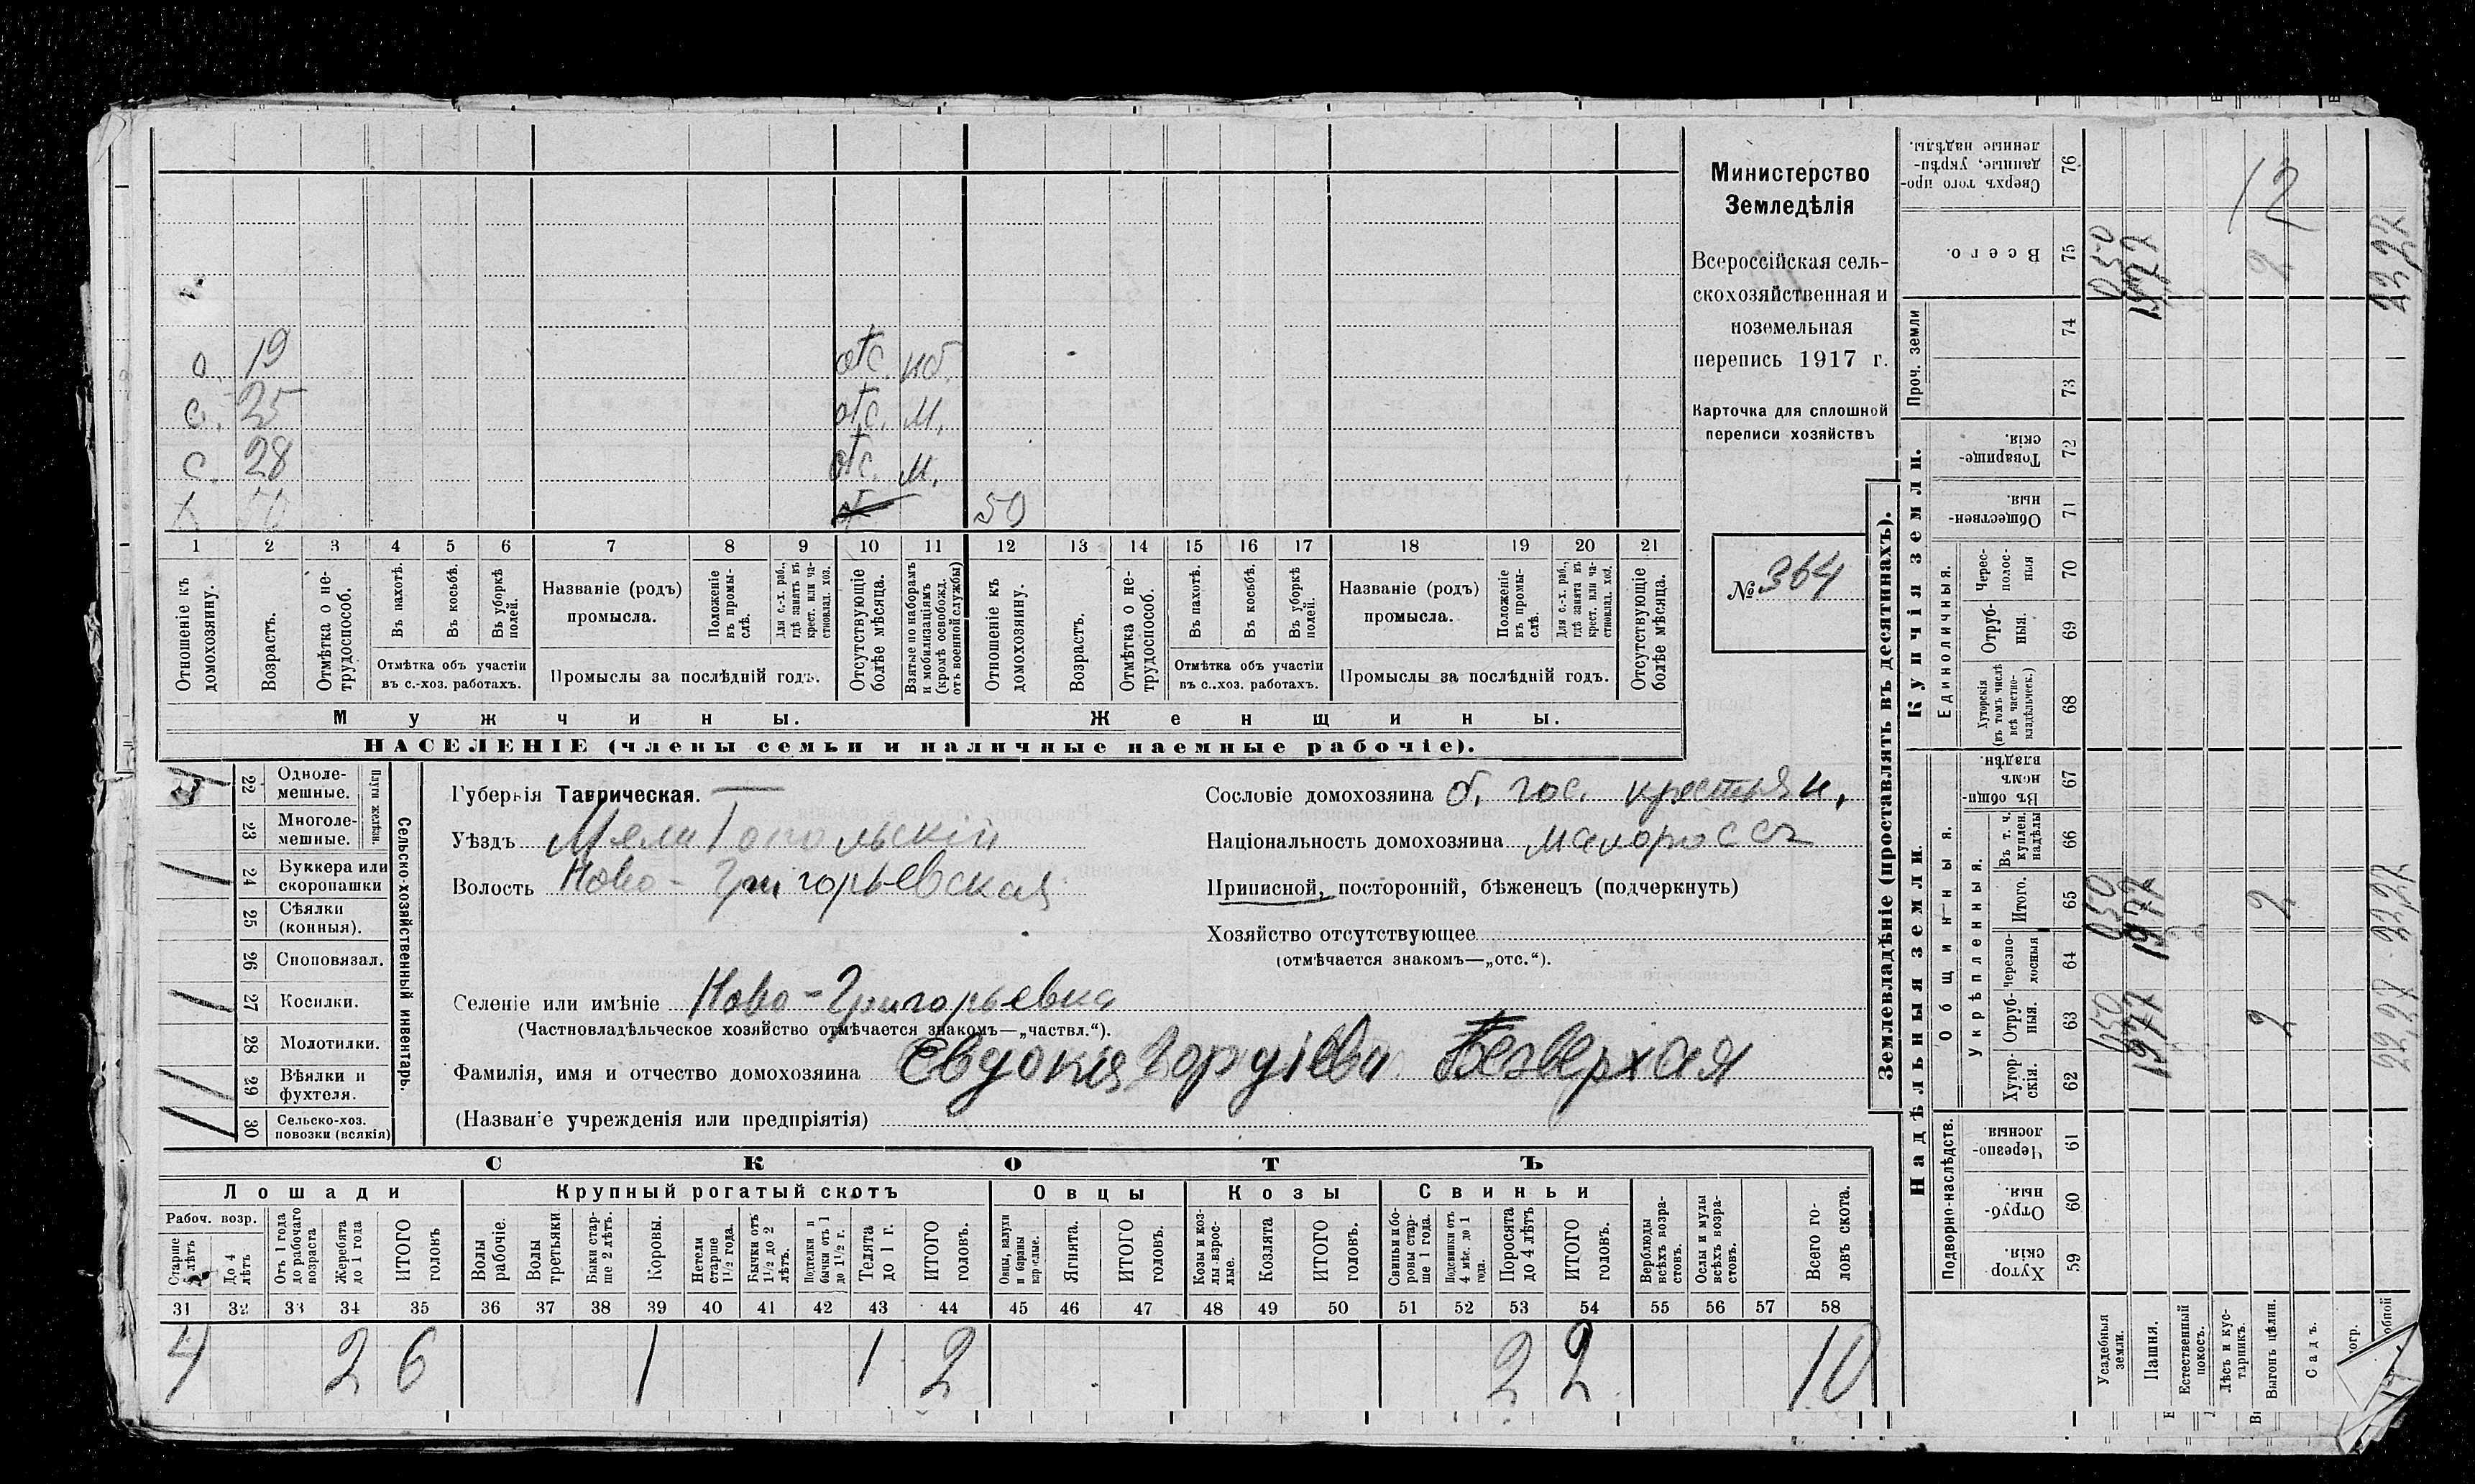 о. 19 отс. нб.
с. 25 отс. м.
с. 28 отс. м.
50
1 2 3 4 5 6 7 8 9 10 11 12 13 14 15 16 17 18 19 20 21
Отношеніе къ домохозяину.
Возрастъ.
Отмѣтка о нетрудоспособ.
Въ пахотѣ.
Въ косьбѣ.
Въ уборкѣ полей.
Отмѣтка объ участіи
въ с.-хоз. работахъ.
Названіе (родъ)
промысла.
Положеніе въ промыслѣ.
Для с.-х. раб., гдѣ занятъ въ крест. или частновлад. хоз.
Промыслы за послѣдній годъ.
Отсутствующіе болѣе мѣсяца.
Взятые по наборамъ и мобилизаціямъ (кромѣ освобожд. отъ военной службы)
Отношеніе къ домохозяину.
Возрастъ.
Отмѣтка о нетрудоспособ.
Въ пахотѣ.
Въ косьбѣ.
Въ уборкѣ полей.
Отмѣтка объ участіи
въ с.-хоз. работахъ.
Названіе (родъ)
промысла.
Положеніе въ промыслѣ.
Для с.-х. раб., гдѣ занята въ крест. или частновлад. хоз.
Промыслы за послѣдній годъ.
Отсутствующіе болѣе мѣсяца.
Мужчины.
Женщины.
НАСЕЛЕНІЕ (члены семьи и наличные наемные рабочіе).
Министерство
Земледѣлія
Всероссійская сель-
скохозяйственная и
поземельная
перепись 1917 г.
Карточка для сплошной
переписи хозяйствъ
№ 364
22 Одноле-
мешные.
23 Многоле-
мешные.
Плуги желѣзн.
24 Буккера или
скоропашки
25 Сѣялки
(конныя).
26 Сноповязал.
27 Косилки.
28 Молотилки.
29 Вѣялки и
фухтеля.
30 Сельско-хоз.
повозки (всякія)
Сельско-хозяйственный инвентарь.
Губернія Таврическая.
Уѣздъ Мелитопольскій
Волость Ново-Григорьевская
Селеніе или имѣніе Ново-Григорьевка
(Частновладѣльческое хозяйство отмѣчается знакомъ—„частвл.“).
Фамилія, имя и отчество домохозяина Евдокія Безверхая
(Названіе учрежденія или предпріятія)
Сословіе домохозяина б. гос. крестьян.
Національность домохозяина малороссъ
Приписной, посторонній, бѣженецъ (подчеркнуть)
Хозяйство отсутствующее
(отмѣчается знакомъ—„отс.“).
СКОТЪ
Лошади
Крупный рогатый скотъ
Овцы
Козы
Свиньи
Рабоч. возр.
Старше лѣтъ
До 4 лѣтъ
Отъ 1 года до рабочаго возраста
Жеребята до 1 года
ИТОГО головъ
Волы рабочіе.
Волы третьяки
Быки старше 2 лѣтъ.
Коровы.
Нетели старше 1 1/2 года.
Бычки отъ 1 1/2 до 2 лѣтъ.
Подтелки и бычки отъ 1 до 1 1/2 г.
Телята до 1 г.
ИТОГО головъ.
Овцы, валухи и бараны взрослые.
Ягнята.
ИТОГО головъ.
Козы и козлы взрослые.
Козлята
ИТОГО головъ.
Свиньи и боровы старше 1 года.
Подсвинки отъ 4 мѣс. до 1 года.
Поросята до 4 лѣтъ
ИТОГО головъ.
Верблюды всѣхъ возрастовъ.
Ослы и мулы всѣхъ возрастовъ.
Всего головъ скота.
31 32 33 34 35 36 37 38 39 40 41 42 43 44 45 46 47 48 49 50 51 52 53 54 55 56 57 58
4 2 6 1 1 2 2 2 10
Землевладѣніе (проставлять въ десятинахъ).
Надѣльныя земли.
Купчія земли.
Проч. земли
Подворно-наслѣдств.
Общинныя.
Укрѣпленныя.
Единоличныя.
Хуторскія. 59
Отрубныя. 60
Черезполосныя 61
Хуторскія. 62
Отрубныя. 63
Черезполосныя 64
Итого. 65
Въ т. ч. куплен. надѣлы 66
Въ общинномъ владѣн. 67
Хуторскія (въ томъ числѣ всѣ частновладѣльческ.) 68
Отрубныя. 69
Чересполосныя 70
Общественныя. 71
Товарищескія. 72
73
74
Всего. 75
Сверхъ того проданные, укрѣпленные надѣлы. 76
Усадебныя земли. 050 050 050
Пашня. 1977 1977 1977
Естественный покосъ.
Лѣсъ и кустарникъ.
Выгонъ цѣлин. 2 2 2 12
Садъ.
22,27 22,27 22,27